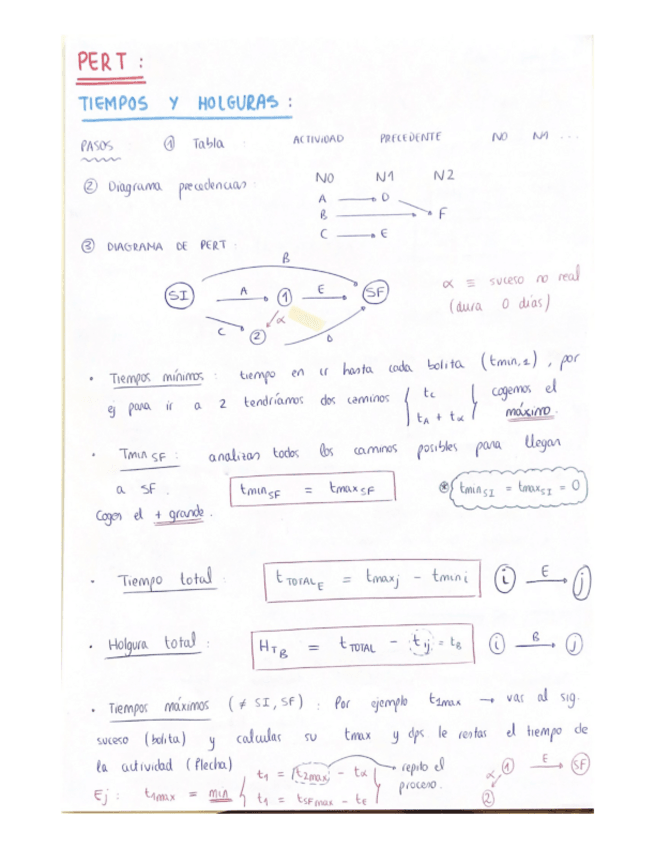 PERT :
TIEMPOS Y HOLGURAS :
PASOS : ① Tabla : ACTIVIDAD PRECEDENTE N0 N1 ...
② Diagrama precedencias : N0 N1 N2
A → D
B → F
C → E
③ DIAGRAMA DE PERT :
B
SI A 1 E SF
α ≡ suceso no real
(dura 0 días)
C 2 α D
• Tiempos mínimos : tiempo en ir hasta cada bolita (tmin,2) , por
ej para ir a 2 tendríamos dos caminos { tc
tA + tα } cogemos el
máximo.
• Tmin SF : analizan todos los caminos posibles para llegar
a SF. tminSF = tmaxSF ⊛ tminSI = tmaxSI = 0
Coger el + grande.
• Tiempo total : tTOTALE = tmaxj - tmini i E j
• Holgura total : HTB = tTOTAL - tij = tB i B j
• Tiempos máximos (≠ SI, SF) : Por ejemplo t1max → vas al sig.
suceso (bolita) y calculas su tmax y dps le restas el tiempo de
la actividad (flecha)
Ej : t1max = min { t1 = t2max - tα
t1 = tSFmax - tE }
repito el
proceso.
α 1 E SF
2